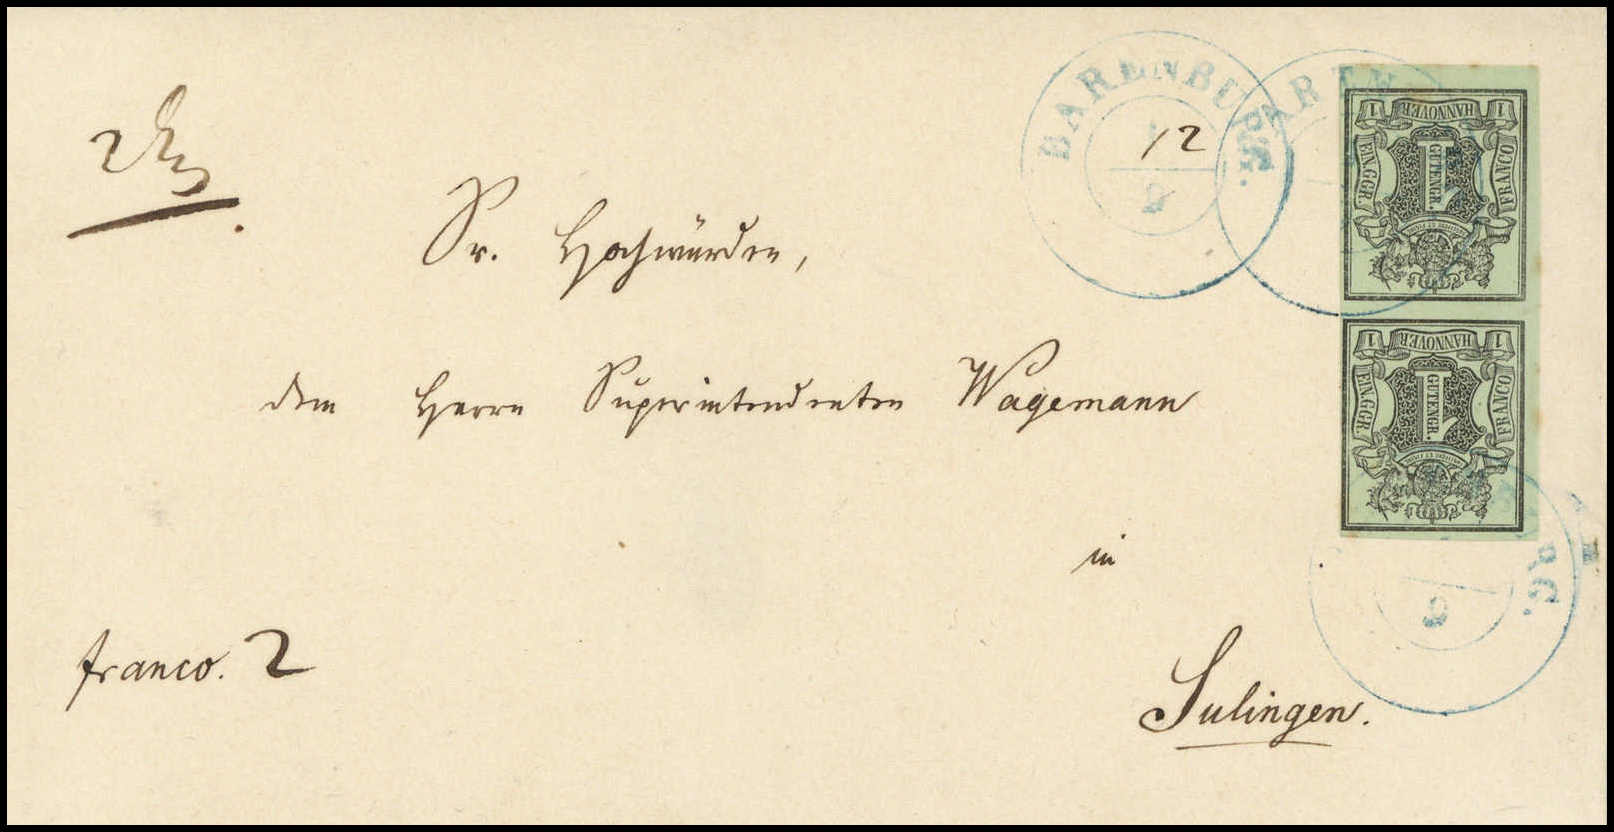 BARENBURG.
12
9
BAREN
Sr. Hochwürden,
dem Herrn Superintendenten Wagemann
in
Sulingen.
franco. 2
1 HANNOVER 1
EIN.GGR.
1
GUTENGR.
FRANCO
1 HANNOVER 1
EIN.GGR.
1
GUTENGR.
FRANCO
RG.
9